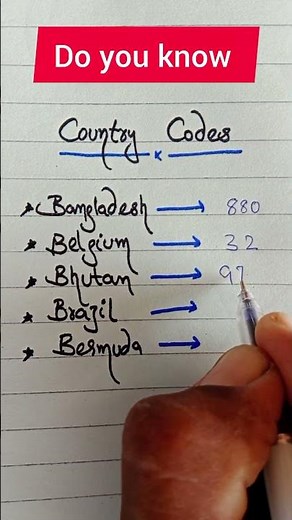 Do you know
Country Codes
Bangladesh → 880
Belgium → 32
Bhutan → 97
Brazil →
Bermuda →